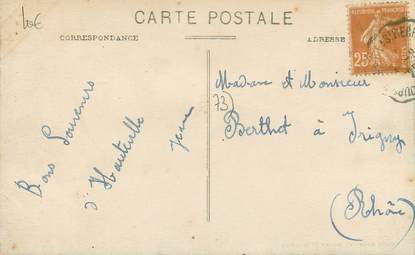 60€
CARTE POSTALE
CORRESPONDANCE
ADRESSE
25c
Bons Souvenirs
d'Hauteville
Jean
Madame et Monsieur
73)
Berthet à Irigny
(Rhône)